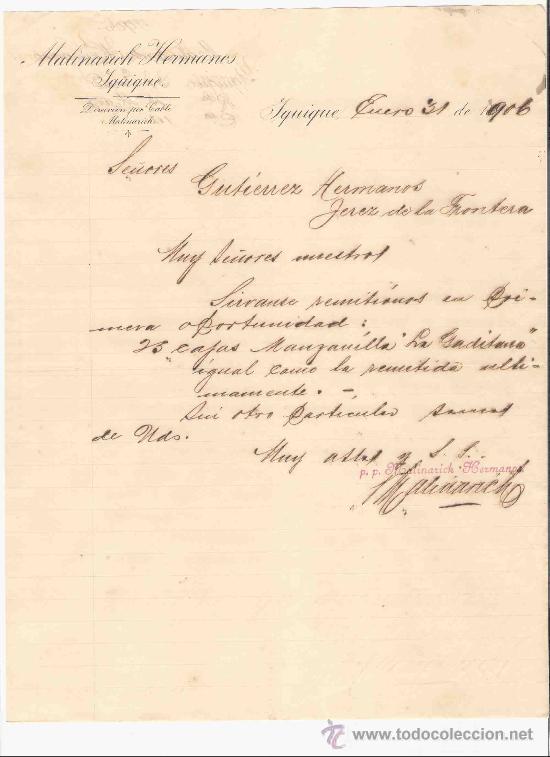 Malinarich Hermanos
Iquique.
Dirección por Cable
Malinarich
Iquique, Enero 31 de 1906
Señores
Gutiérrez Hermanos
Jerez de la Frontera
Muy Señores nuestros
Sirvanse remitirnos en pri-
mera oportunidad:
25 cajas Manzanilla "La Gaditana"
igual como la remitida ulti-
mamente. -
Sin otro particular somos
de Uds.
Muy atts y S. S.
p. p. Malinarich Hermanos
Malinarich
todocoleccion
www.todocoleccion.net